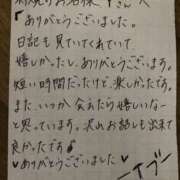 お名様 Tさん へ
「ありがとうございました。
日記も見ていてくれていて
嬉しかったし、ありがとうございます。
短い時間だったけど、楽しかったです。
また、いつか会えたら嬉しいなー
と思っています。沢山お話しも出来て
良かったです♪
♡ありがとうございました♡